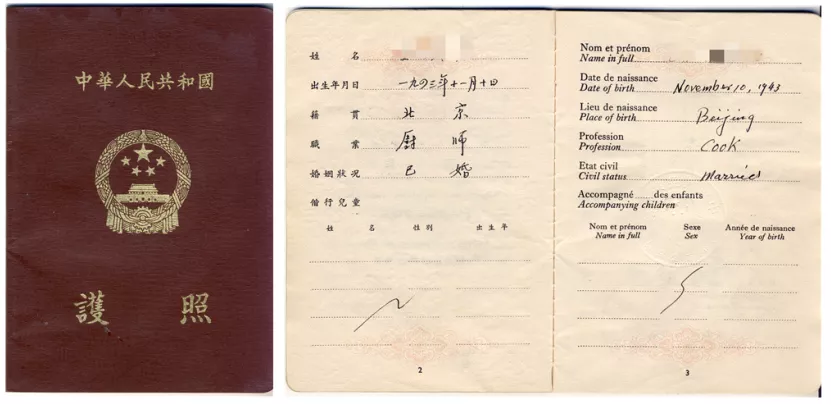 中華人民共和國
護照
姓名
出生年月日 一九四三年十一月十日
籍貫 北京
職業 廚師
婚姻狀况 已婚
偕行兒童
姓名 性别 出生年
2
Nom et prénom
Name in full
Date de naissance
Date of birth November 10, 1943
Lieu de naissance
Place of birth Beijing
Profession
Profession Cook
Etat civil
Civil status Married
Accompagné des enfants
Accompanying children
Nom et prénom Sexe Année de naissance
Name in full Sex Year of birth
3